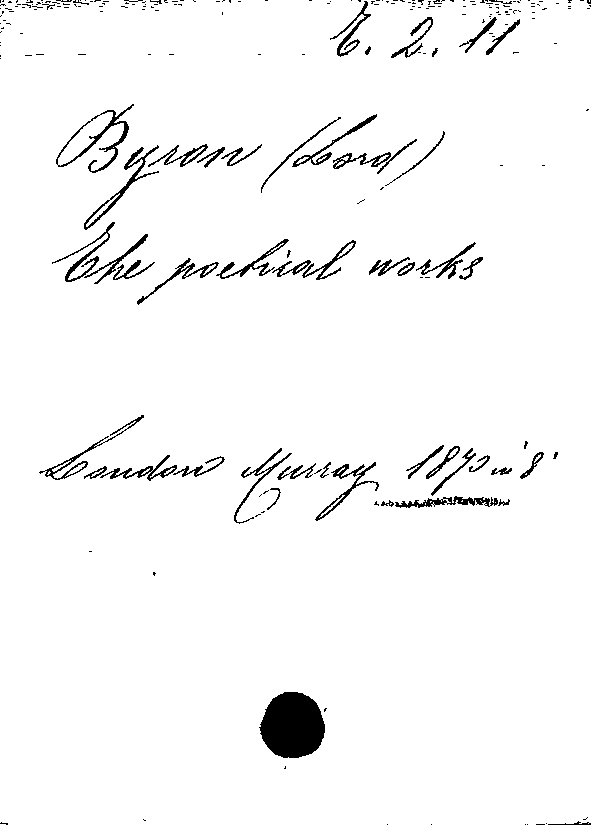 E. 2. 11
Byron (Lord)
The poetical works
London Murray 1870 in 8°